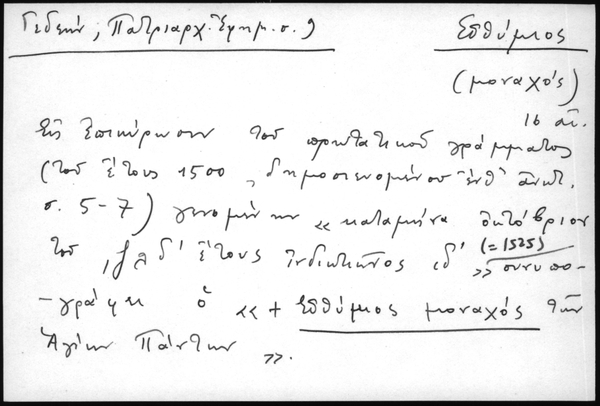 Γεδεών, Πατριαρχ. Ἐφημ. σ. 9
Εὐθύμιος
(μοναχός)
16 αἰ.
Εἰς ἐπικύρωσιν τοῦ πρωτατικοῦ γράμματος
(τοῦ ἔτους 1500, δημοσιευομένου ἔνθ' ἀνωτ.
σ. 5-7) γενομένην «κατα μῆνα ὀκτώβριον
τοῦ ,ζλδ' ἔτους ἰνδικτιῶνος ιδ' (=1525)» συνυπο-
-γράφει ὁ «+ Εὐθύμιος μοναχός τῶν
Ἁγίων Πάντων».